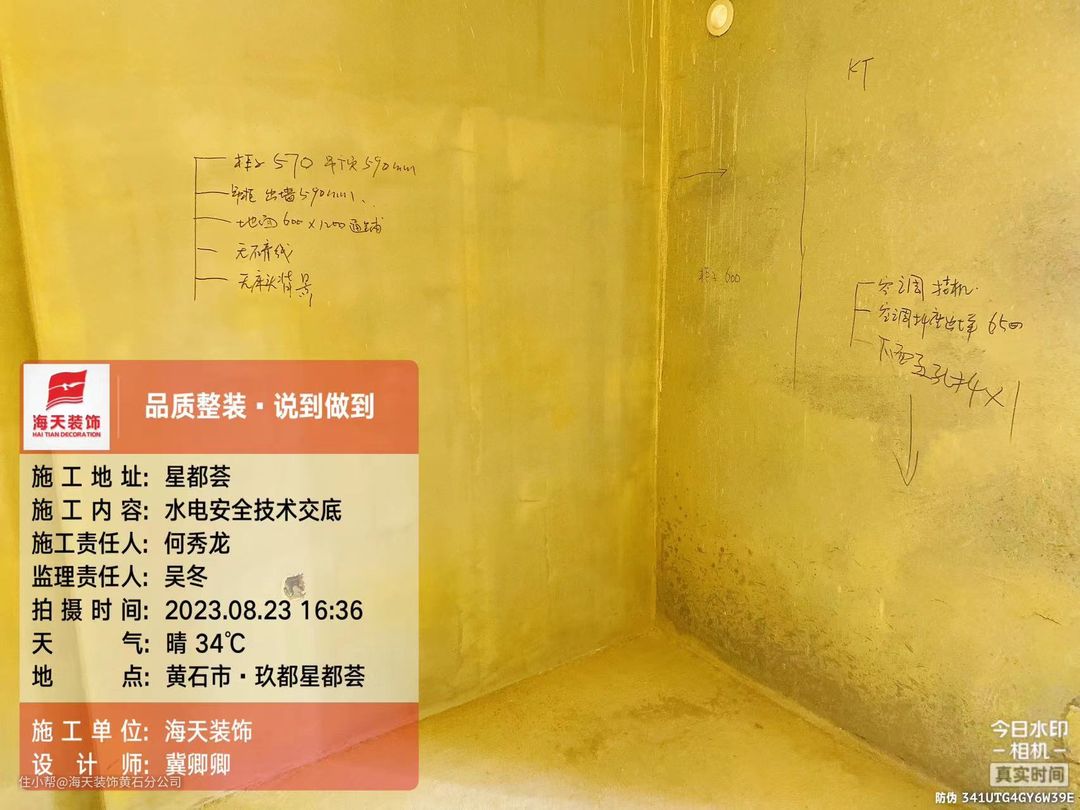 KT
柜子 570 吊顶 590mm
出墙590mm
地面 600 x 1200 通铺
无石膏线
无床头背景
柜子 600
空调 挂机
空调插座出墙 650
下面五孔插 x 1
海天装饰
HAI TIAN DECORATION
品质整装·说到做到
施工地址: 星都荟
施工内容: 水电安全技术交底
施工责任人: 何秀龙
监理责任人: 吴冬
拍摄时间: 2023.08.23 16:36
天气: 晴 34℃
地点: 黄石市·玖都星都荟
施工单位: 海天装饰
设计师: 冀卿卿
住小帮@海天装饰黄石分公司
今日水印
-相机-
真实时间
防伪 341UTG4GY6W39E